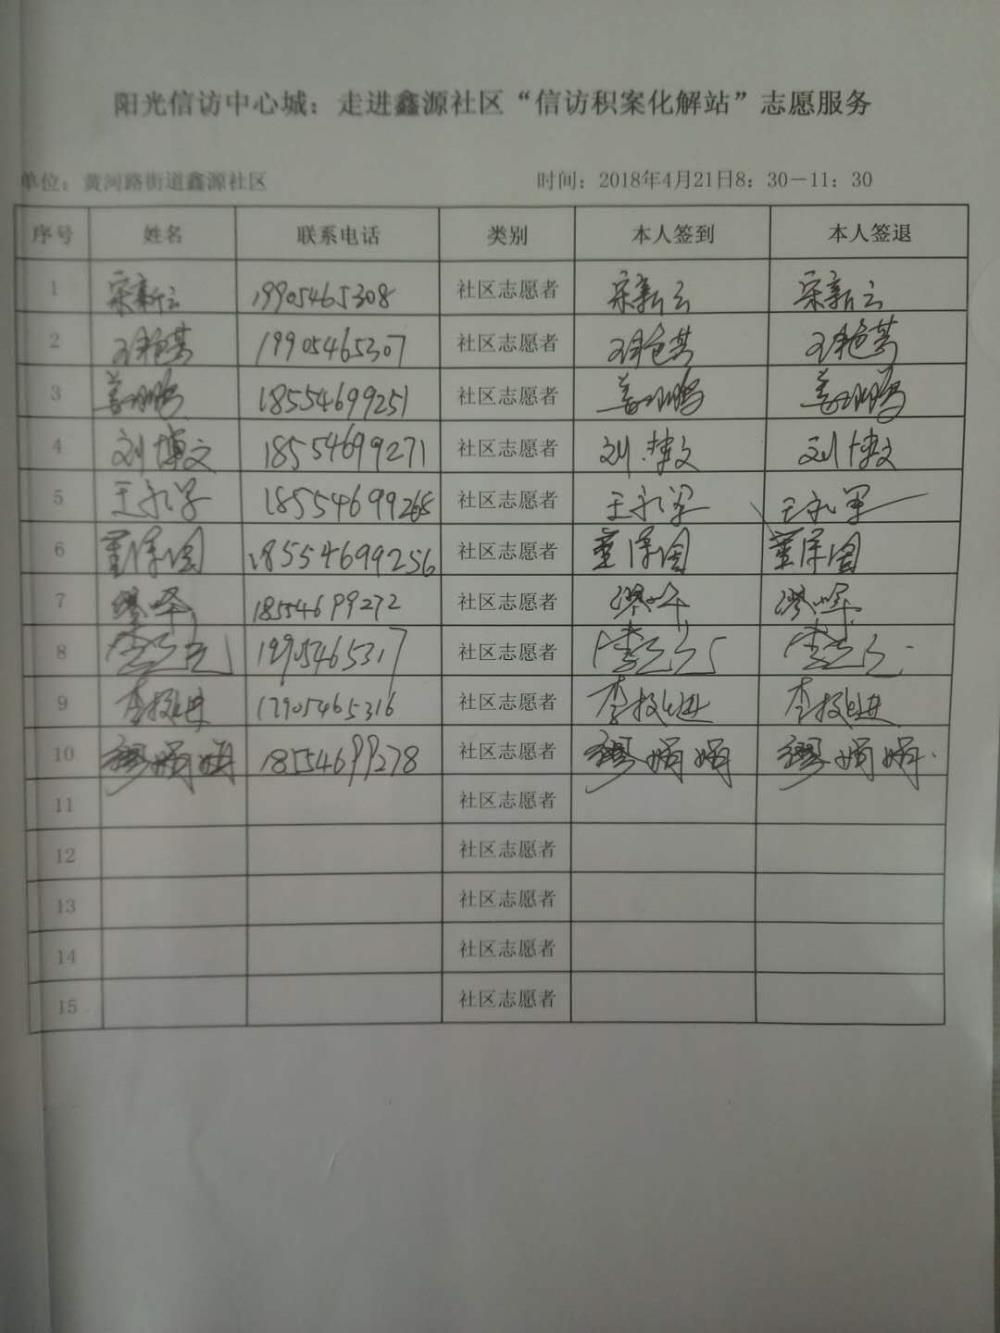 阳光信访中心城：走进鑫源社区“信访积案化解站”志愿服务
单位：黄河路街道鑫源社区 时间：2018年4月21日8：30－11：30
序号 姓名 联系电话 类别 本人签到 本人签退
1 宋新云 19905465308 社区志愿者 宋新云 宋新云
2 19905465307 社区志愿者
3 18554699251 社区志愿者
4 刘博文 18554699271 社区志愿者 刘博文 刘博文
5 王永军 18554699268 社区志愿者 王永军 王永军
6 18554699256 社区志愿者
7 18554699272 社区志愿者
8 19905465317 社区志愿者
9 19905465316 社区志愿者
10 缪娟娟 18554699278 社区志愿者 缪娟娟 缪娟娟
11 社区志愿者
12 社区志愿者
13 社区志愿者
14 社区志愿者
15 社区志愿者